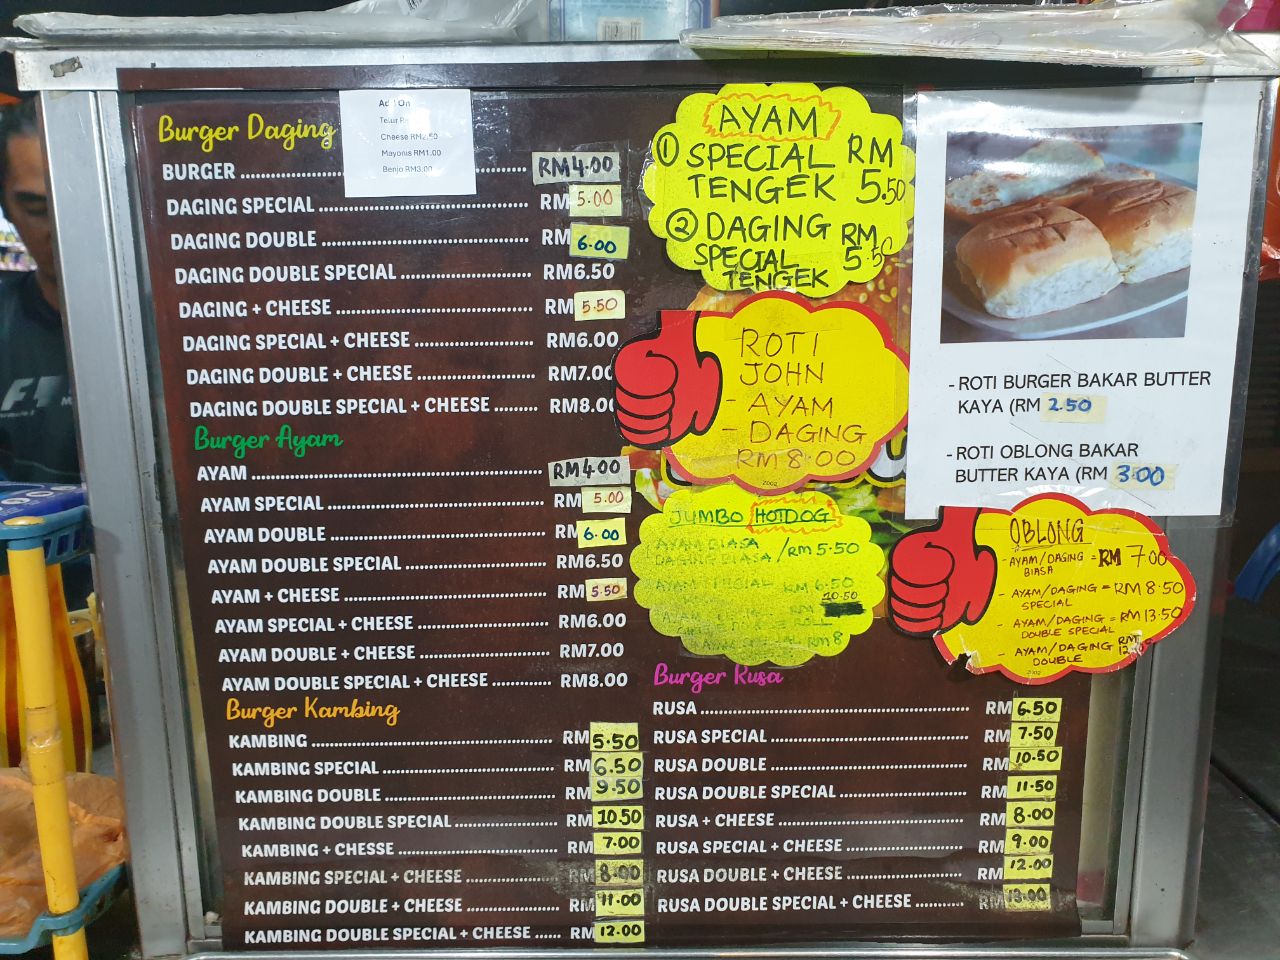 Burger Daging
Add On
Telur
Cheese RM2.50
Mayonis RM1.00
Benjo RM3.00
BURGER RM4.00
DAGING SPECIAL RM 5.00
DAGING DOUBLE RM 6.00
DAGING DOUBLE SPECIAL RM6.50
DAGING + CHEESE RM 5.50
DAGING SPECIAL + CHEESE RM6.00
DAGING DOUBLE + CHEESE RM7.00
DAGING DOUBLE SPECIAL + CHEESE RM8.00
Burger Ayam
AYAM RM4.00
AYAM SPECIAL RM 5.00
AYAM DOUBLE RM 6.00
AYAM DOUBLE SPECIAL RM6.50
AYAM + CHEESE RM 5.50
AYAM SPECIAL + CHEESE RM6.00
AYAM DOUBLE + CHEESE RM7.00
AYAM DOUBLE SPECIAL + CHEESE RM8.00
Burger Kambing
KAMBING RM 5.50
KAMBING SPECIAL RM 6.50
KAMBING DOUBLE RM 9.50
KAMBING DOUBLE SPECIAL RM 10.50
KAMBING + CHESSE RM 7.00
KAMBING SPECIAL + CHEESE RM 8.00
KAMBING DOUBLE + CHEESE RM 11.00
KAMBING DOUBLE SPECIAL + CHEESE RM 12.00
AYAM
① SPECIAL RM
TENGEK 5.50
② DAGING RM
SPECIAL 5.50
TENGEK
ROTI
JOHN
- AYAM
- DAGING
RM 8.00
JUMBO HOTDOG
AYAM BIASA
DAGING BIASA / RM 5.50
RM 6.50
10.50
RM
ROLL
RM 8
Burger Rusa
RUSA RM 6.50
RUSA SPECIAL RM 7.50
RUSA DOUBLE RM 10.50
RUSA DOUBLE SPECIAL RM 11.50
RUSA + CHEESE RM 8.00
RUSA SPECIAL + CHEESE RM 9.00
RUSA DOUBLE + CHEESE RM 12.00
RUSA DOUBLE SPECIAL + CHEESE RM 13.00
- ROTI BURGER BAKAR BUTTER
KAYA (RM 2.50
- ROTI OBLONG BAKAR
BUTTER KAYA (RM 3.00
OBLONG
- AYAM/DAGING = RM 7.00
BIASA
- AYAM/DAGING = RM 8.50
SPECIAL
- AYAM/DAGING = RM 13.50
DOUBLE SPECIAL
- AYAM/DAGING RM
DOUBLE